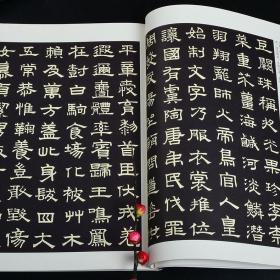 巨闕珠稱夜光果珍李柰
菜重芥薑海鹹河淡鱗潛
羽翔龍師火帝鳥官人皇
始制文字乃服衣裳推位
讓國有虞陶唐弔民伐罪
周發殷湯坐朝問道垂拱
平章愛育黎首臣伏戎羌
遐邇壹體率賓歸王鳴鳳
在樹白駒食場化被草木
賴及萬方蓋此身髮四大
五常恭惟鞠養豈敢毀傷
女慕貞潔男效才良